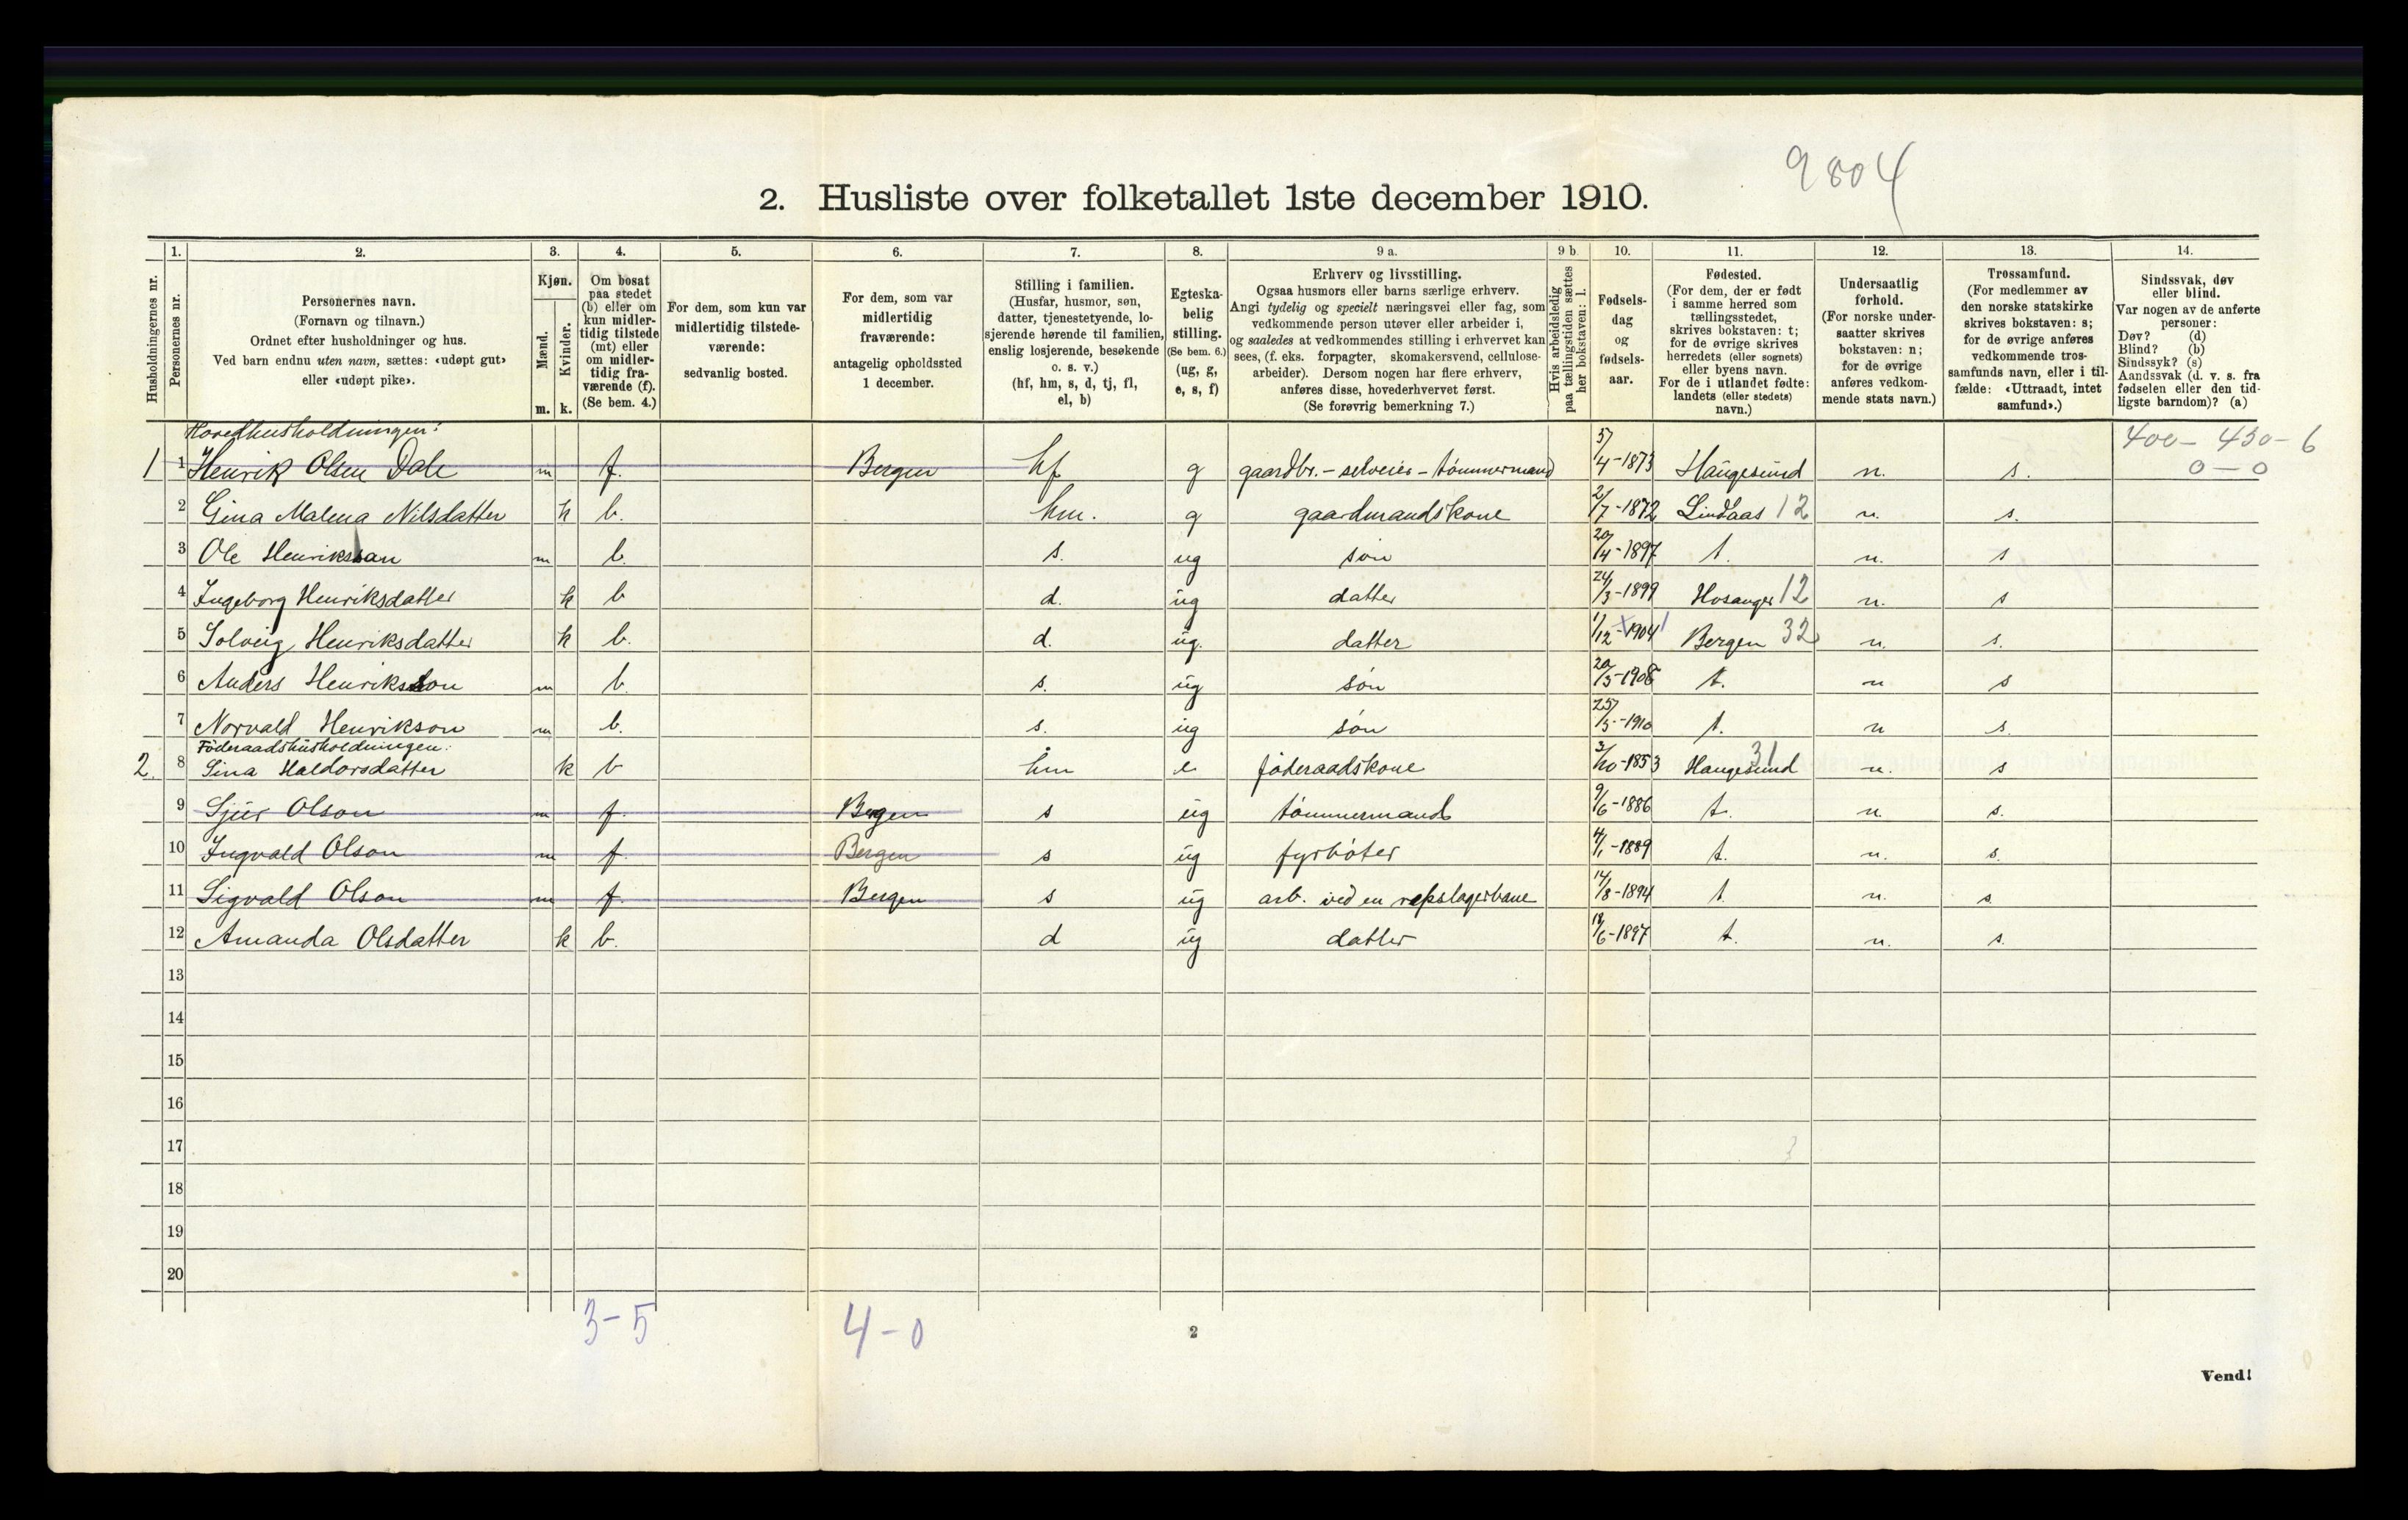 9804
2. Husliste over folketallet 1ste december 1910.
1. 2. 3. 4. 5. 6. 7. 8. 9 a. 9 b. 10. 11. 12. 13. 14.
Husholdningernes nr.
Personernes nr.
Personernes navn.
(Fornavn og tilnavn.)
Ordnet efter husholdninger og hus.
Ved barn endnu uten navn, sættes: «udøpt gut»
eller «udøpt pike».
Kjøn.
Mænd.
Kvinder.
m. k.
Om bosat
paa stedet
(b) eller om
kun midler-
tidig tilstede
(mt) eller
om midler-
tidig fra-
værende (f).
(Se bem. 4.)
For dem, som kun var
midlertidig tilstede-
værende:
sedvanlig bosted.
For dem, som var
midlertidig
fraværende:
antagelig opholdssted
1 december.
Stilling i familien.
(Husfar, husmor, søn,
datter, tjenestetyende, lo-
sjerende hørende til familien,
enslig losjerende, besøkende
o. s. v.)
(hf, hm, s, d, tj, fl,
el, b)
Egteska-
belig
stilling.
(Se bem. 6.)
(ug, g,
e, s, f)
Erhverv og livsstilling.
Ogsaa husmors eller barns særlige erhverv.
Angi tydelig og specielt næringsvei eller fag, som
vedkommende person utøver eller arbeider i,
og saaledes at vedkommendes stilling i erhvervet kan
sees, (f. eks. forpagter, skomakersvend, cellulose-
arbeider). Dersom nogen har flere erhverv,
anføres disse, hovederhvervet først.
(Se forøvrig bemerkning 7.)
Hvis arbeidsledig
paa tællingstiden sættes
her bokstaven: l.
Fødsels-
dag
og
fødsels-
aar.
Fødested.
(For dem, der er født
i samme herred som
tællingsstedet,
skrives bokstaven: t;
for de øvrige skrives
herredets (eller sognets)
eller byens navn.
For de i utlandet fødte:
landets (eller stedets)
navn.)
Undersaatlig
forhold.
(For norske under-
saatter skrives
bokstaven: n;
for de øvrige
anføres vedkom-
mende stats navn.)
Trossamfund.
(For medlemmer av
den norske statskirke
skrives bokstaven: s;
for de øvrige anføres
vedkommende tros-
samfunds navn, eller i til-
fælde: «Uttraadt, intet
samfund».)
Sindssvak, døv
eller blind.
Var nogen av de anførte
personer:
Døv? (d)
Blind? (b)
Sindssyk? (s)
Aandssvak (d. v. s. fra
fødselen eller den tid-
ligste barndom)? (a)
Hovedhusholdningen:
400 - 430 - 6
0 - 0
1 1 Henrik Olsen Dale m f. Bergen hf g gaardbr. - selveier - tømmermand 5/4 - 1873 Haugesund n. s.
2 Gina Malena Nilsdatter k b. hm. g gaardmandskone 2/7 - 1872 Lindaas 12 n. s.
3 Ole Henriksson m b. s. ug søn 20/4 - 1897 t. n. s
4 Ingeborg Henriksdatter k b d. ug datter 24/3 - 1899 Hosanger 12 n. s
5 Solveig Henriksdatter k b. d. ug. datter 1/12 - 1904 Bergen 32 n. s.
6 Anders Henriksson m b. s. ug søn 20/5 - 1908 t. n s
7 Norvald Henrikson m b. s. ug søn 25/5 - 1910 t. n s.
Föderaadshusholdningen:
2. 8 Sina Haldorsdatter k b hm e føderaadskone 3/10 - 1853 Haugesund 31 n. s
9 Sjur Olson m f. Bergen s ug tømmermand 9/6 - 1886 t. n. s.
10 Ingvald Olson m f. Bergen s ug fyrbøter 4/1 - 1889 t. n. s.
11 Sigvald Olson m f. Bergen s ug arb. ved en repslagerbane 14/8 - 1894 t. n. s.
12 Amanda Olsdatter k b. d ug datter 18/6 - 1897 t. n. s.
13
14
15
16
17 3
18
19
20
3 - 5 4 - 0
2
Vend!